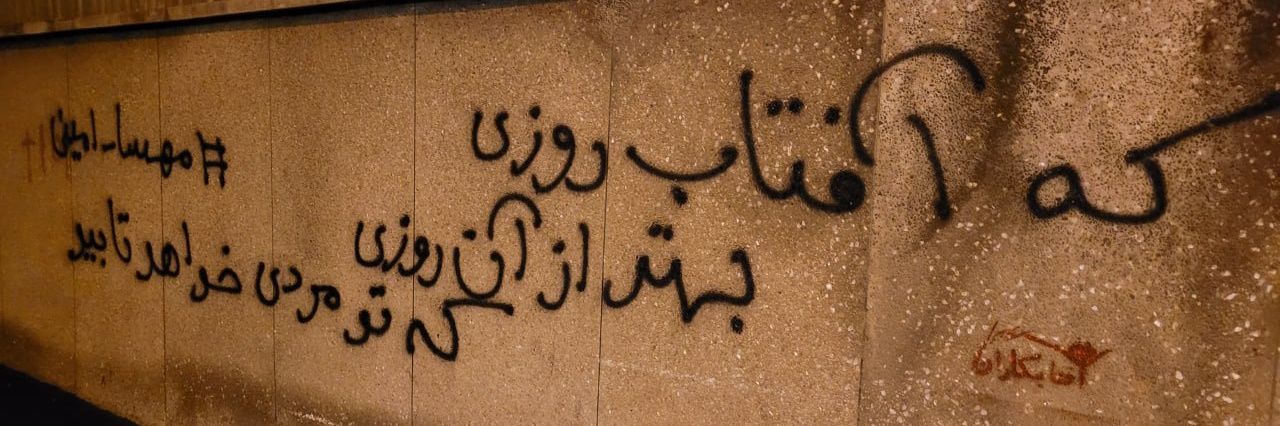 که آفتاب روزی
بهتر از آن روزی
که تو مردی خواهد تابید
#مهسا_امینی
آفتابکاران